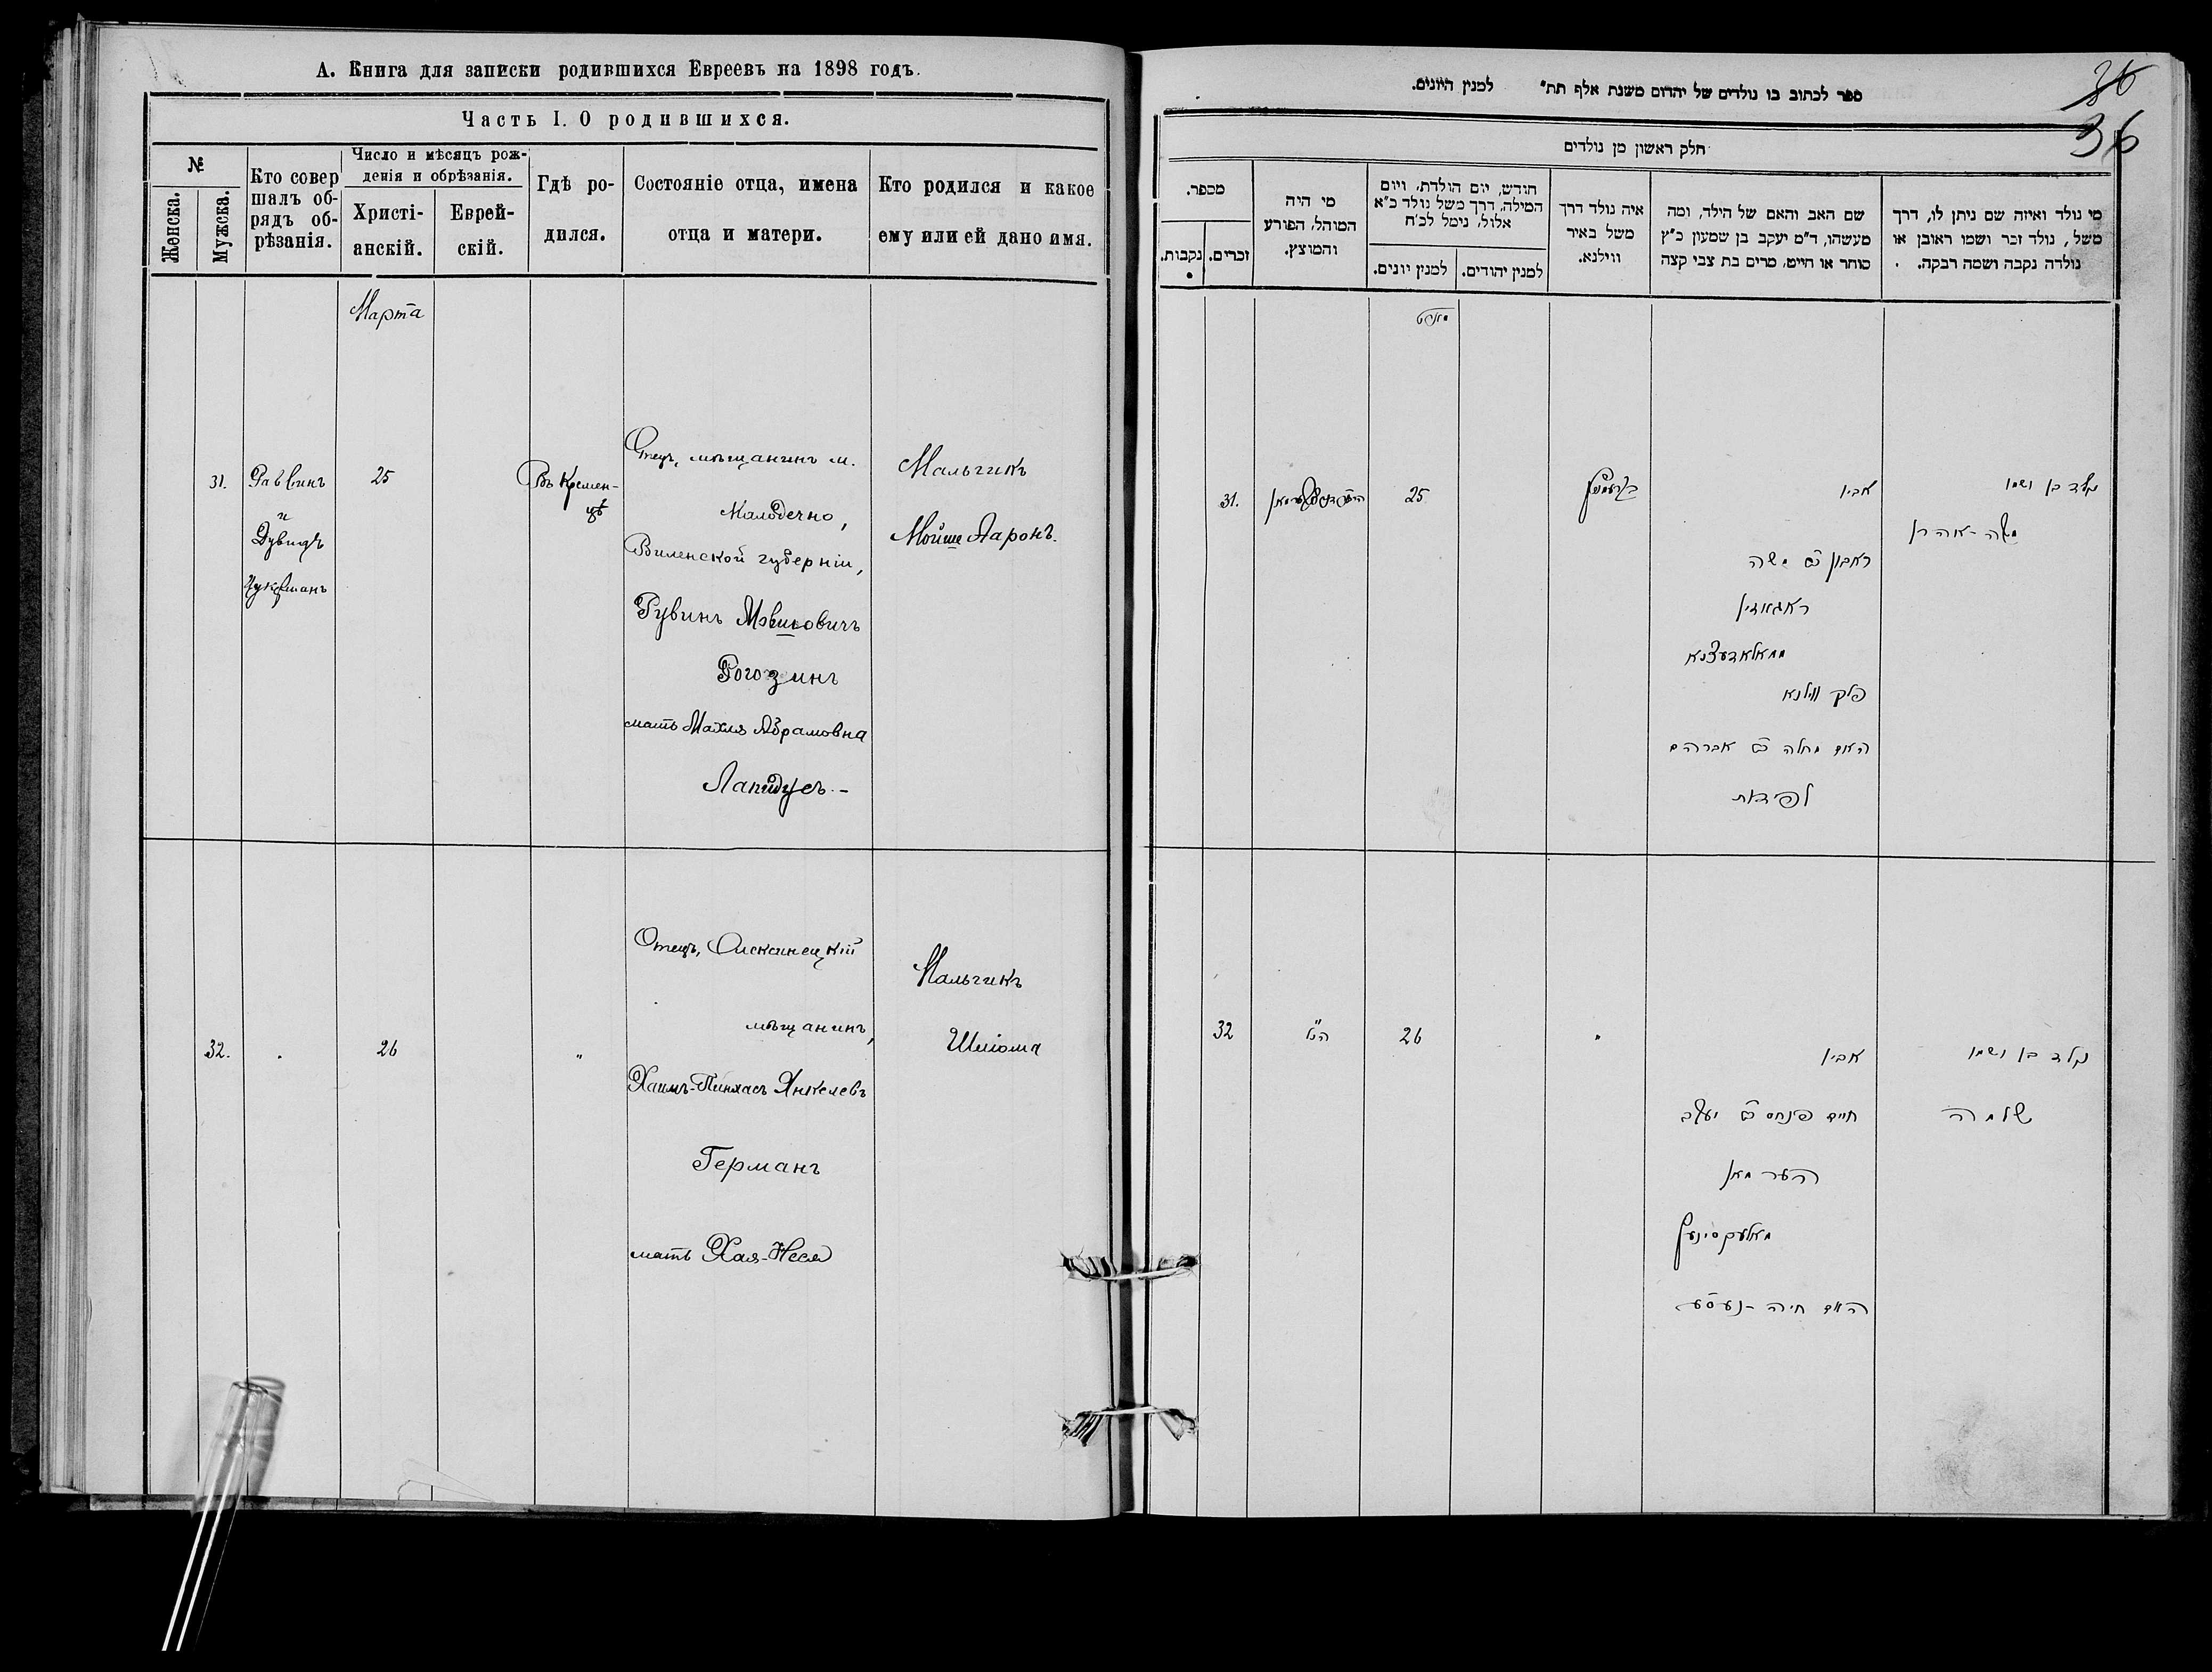 А. Книга для записки родившихся Евреевъ на 1898 годъ.
Часть I. О родившихся.
№
Женска.
Мужска.
Кто совер
шалъ об-
рядъ об-
рѣзанія.
Число и мѣсяцъ рож-
денія и обрѣзанія.
Христі-
анскій.
Еврей-
скій.
Гдѣ ро-
дился.
Состояніе отца, имена
отца и матери.
Кто родился и какое
ему или ей дано имя.
Марта
31.
Раввинъ
и
Дувидъ
Цукерманъ
25
Въ Кремен-
цѣ
Отецъ, мѣщанинъ м.
Малодечно,
Виленской губерніи,
Рувинъ Мовшовичъ
Рогозинъ
мать Махля Абрамовна
Лапидусъ.-
Мальчикъ
Мойше Ааронъ.
32.
26
"
Отецъ, Алексинецкій
мѣщанинъ,
Хаимъ-Пинхасъ Янкелевъ
Германъ
мать Хая-Неся
Мальчикъ
Шліома
36
36
ספר לכתוב בו נולדים של יהדום משנת אלף תת" למנין היונים.
חלק ראשון מן נולדים
מספר.
נקבות.
זכרים.
מי היה
המוהל, הפורע
והמוצץ.
חודש, יום הולדת, ויום
המילה, דרך משל נולד כ"א
אלול, נימל לכ"ח
למנין יונים.
למנין יהודים.
איה נולד דרך
משל באיר
ווילנא.
שם האב והאם של הילד, ומה
מעשהו, ד"מ יעקב בן שמעון כ"ץ
סוחר או חייט, מרים בת צבי קצה
מי נולד ואיזה שם ניתן לו, דרך
משל, נולד זכר ושמו ראובן או
נולדה נקבה ושמה רבקה.
31.
25
אביו
ראובן ב"ר משה
ראגאזין
ממאלאדעצנא
פלך ווילנא
האם מחלה ב"ר אברהם
לפידות
נולד בן ושמו
משה-אהרן
32
הנ"ל
26
"
אביו
חיים פנחס ב"ר יעקב
הערמאן
מאלעקסיניץ
האם חיה-נעסע
נולד בן ושמו
שלמה